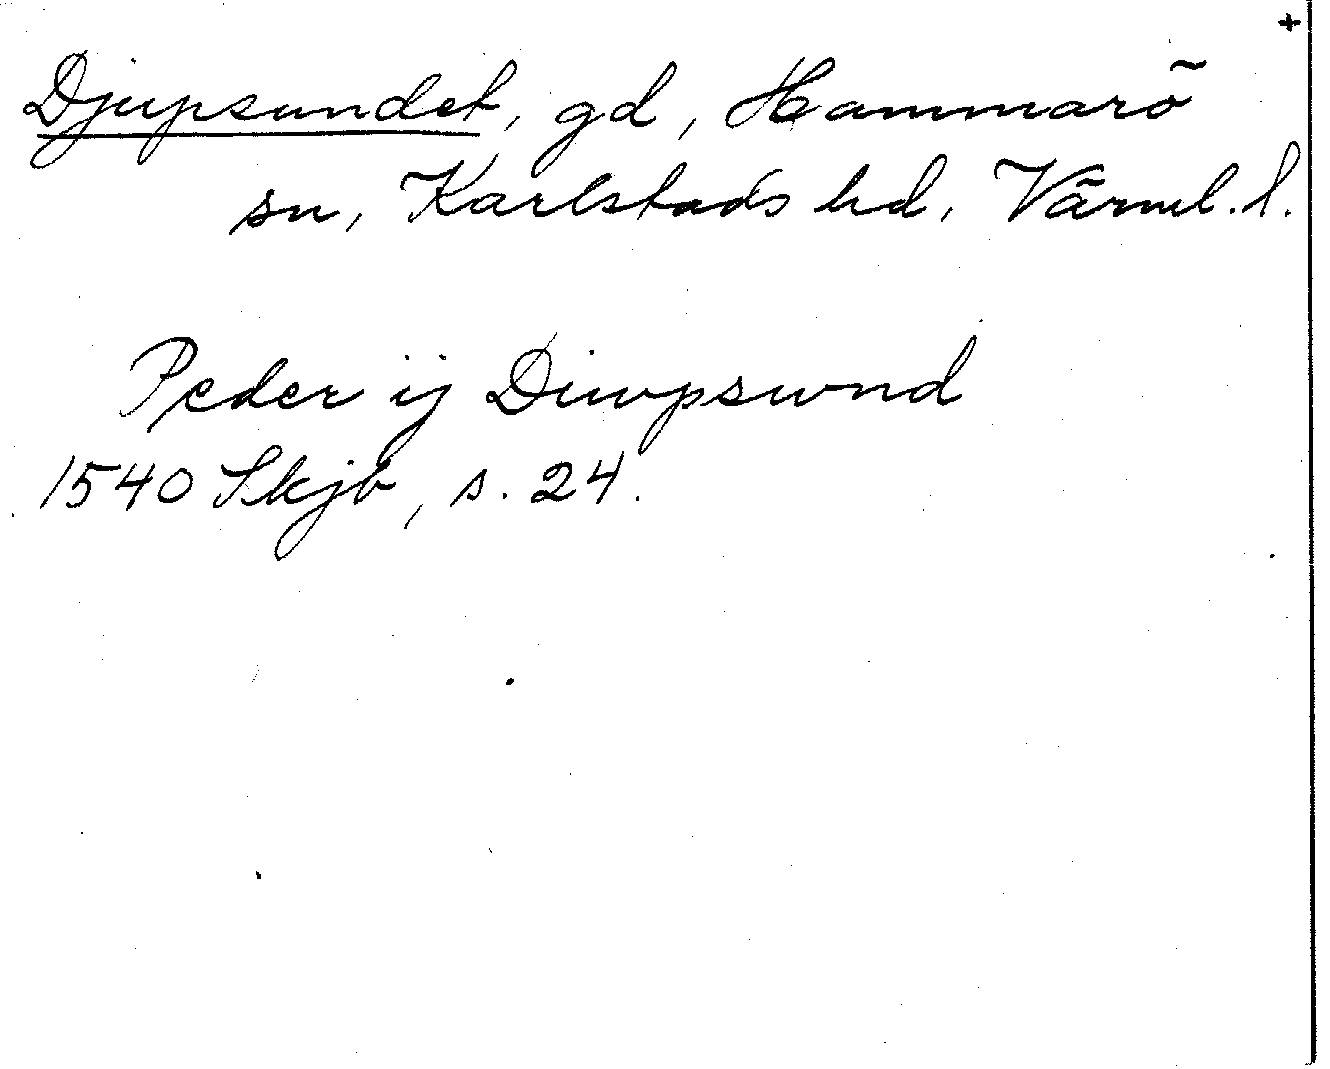 +
Djupsundet, gd, Hammarö
sn, Karlstads hd, Värml. l.
Peder ij Diwpswnd
1540 Skjb, s. 24.